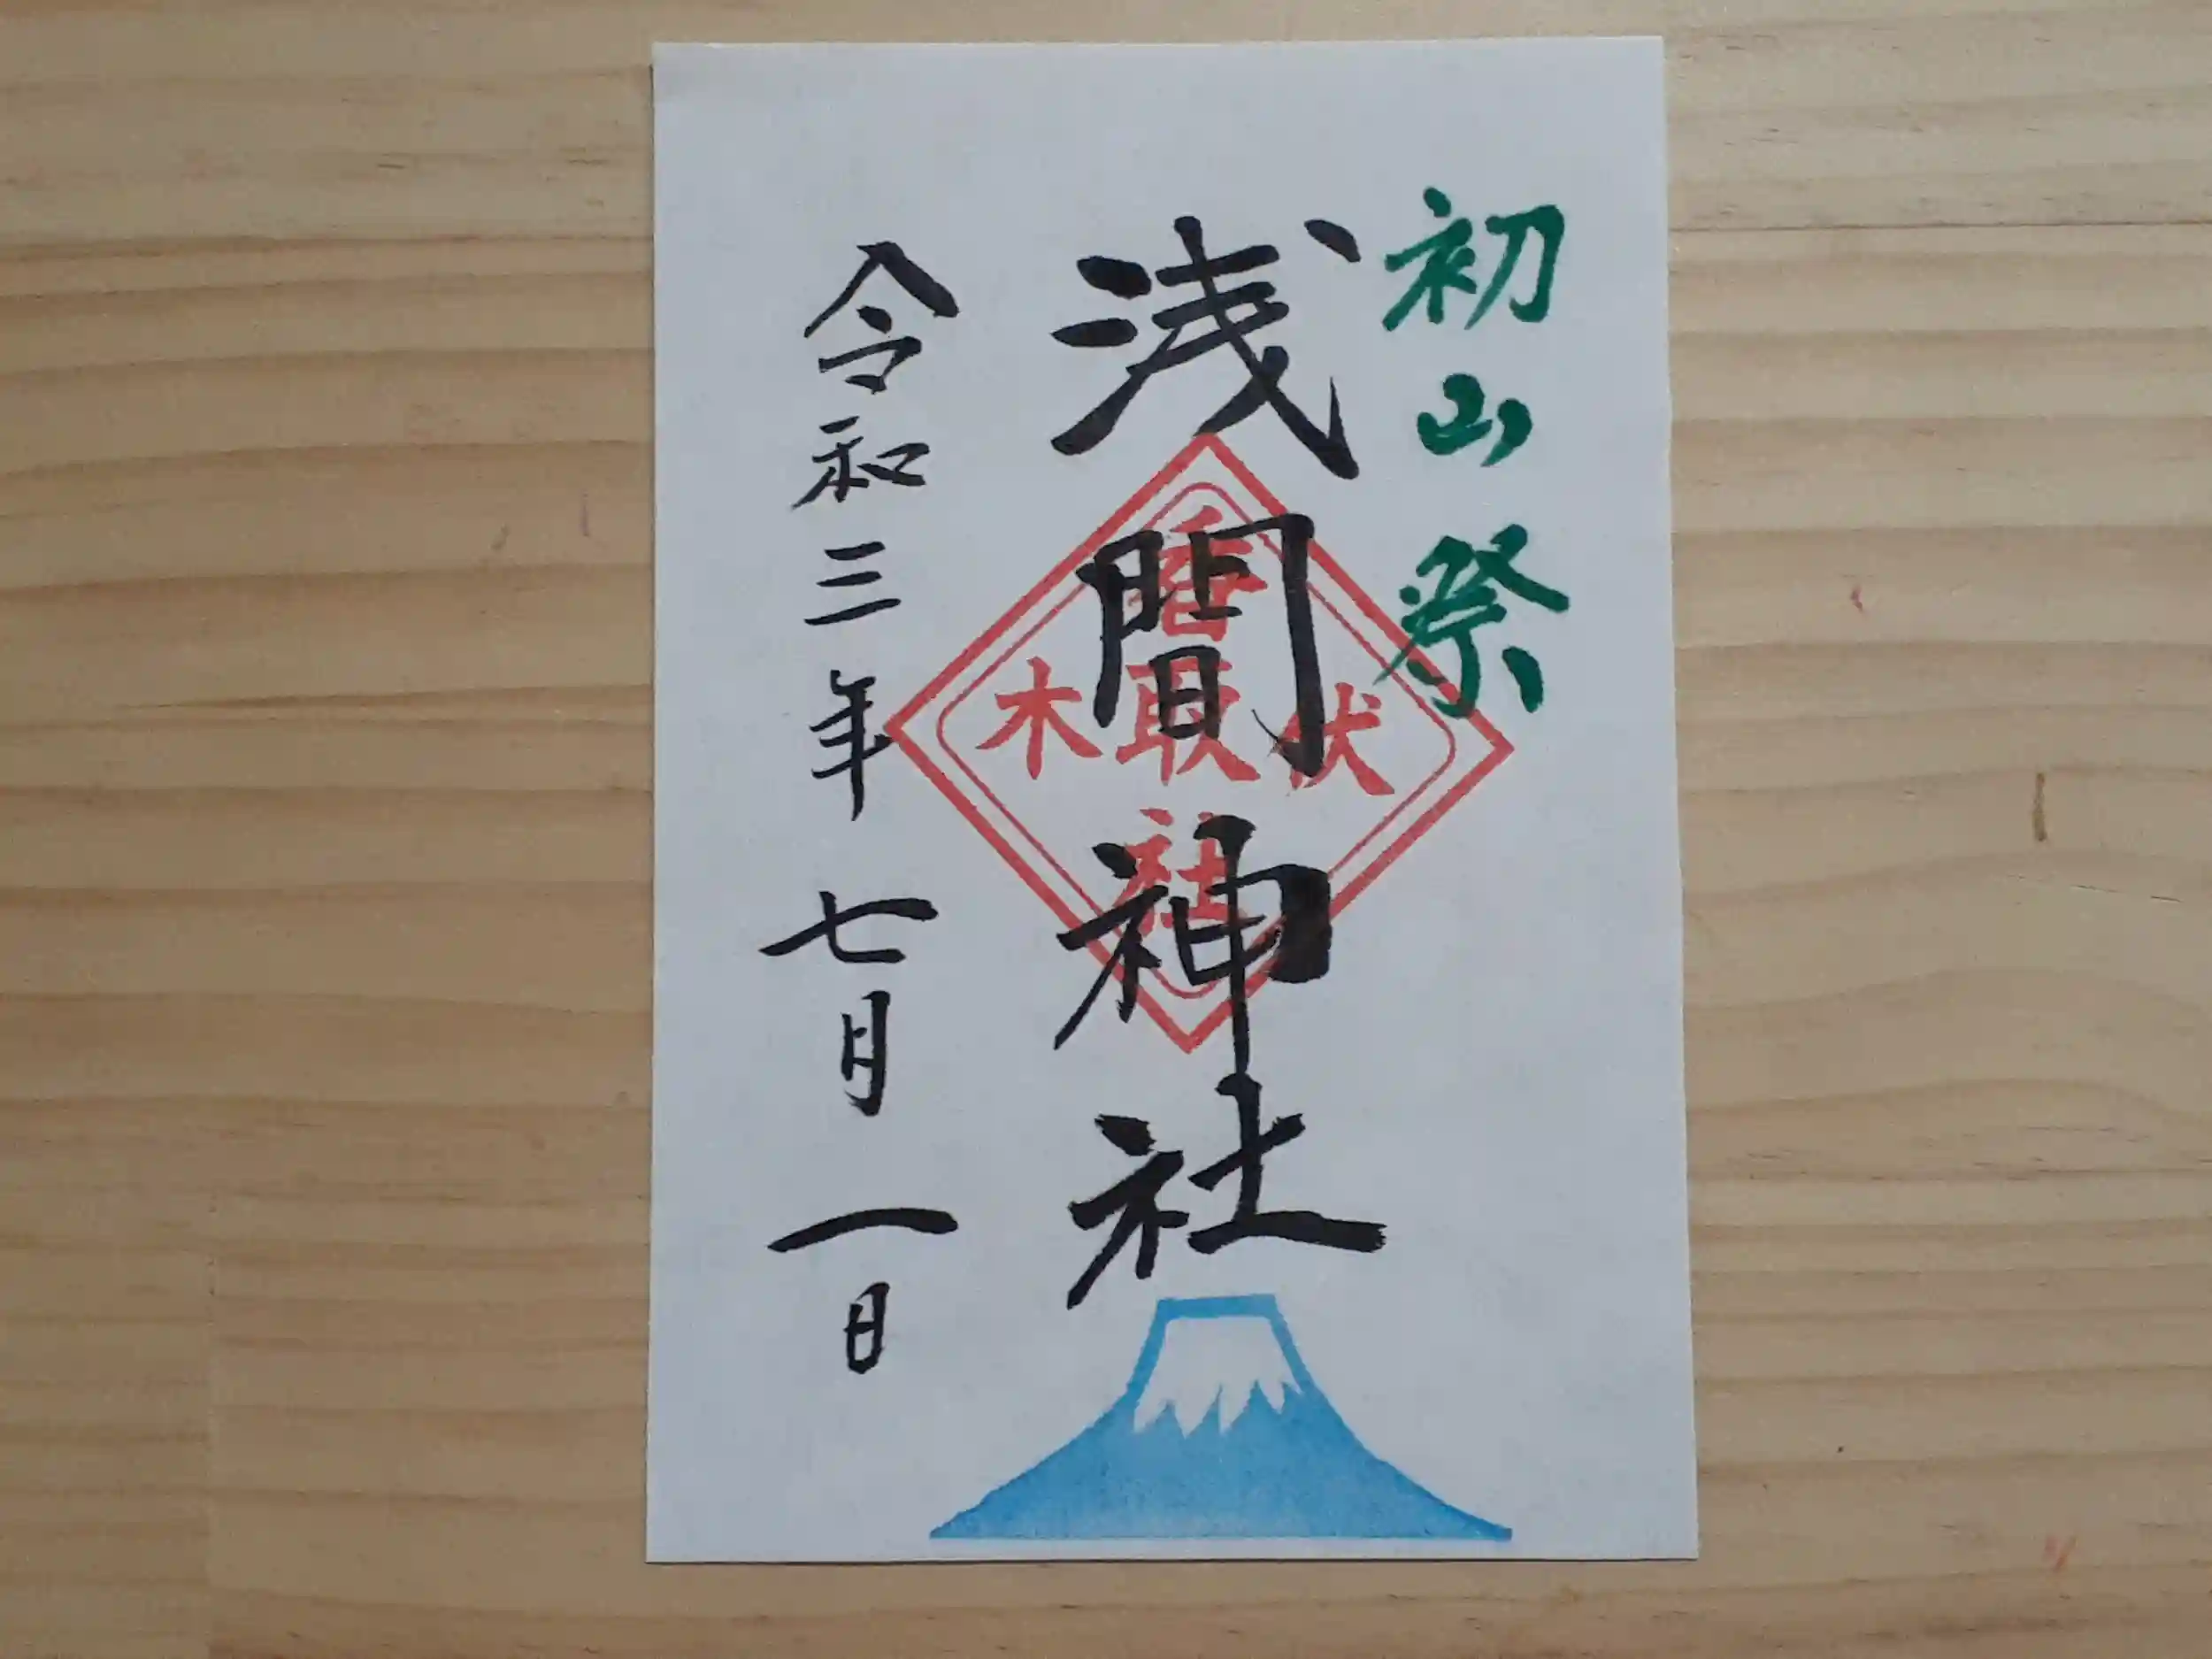 初山祭
浅間神社
伏木
香取社
令和三年七月一日